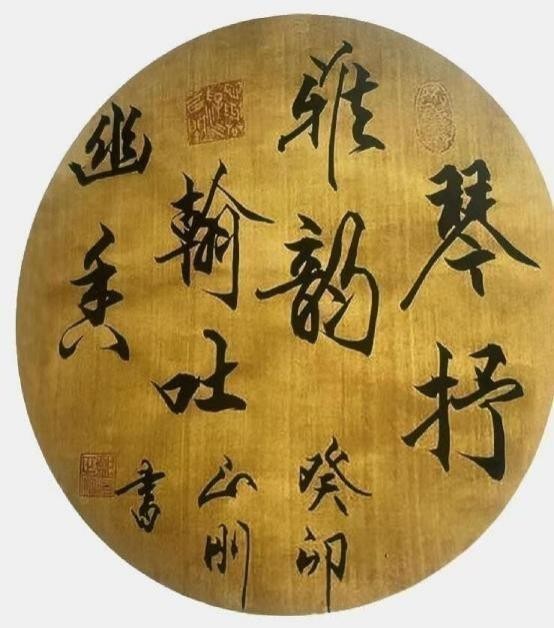 琴抒
雅韵
翰吐
幽香
癸卯
正刚
书